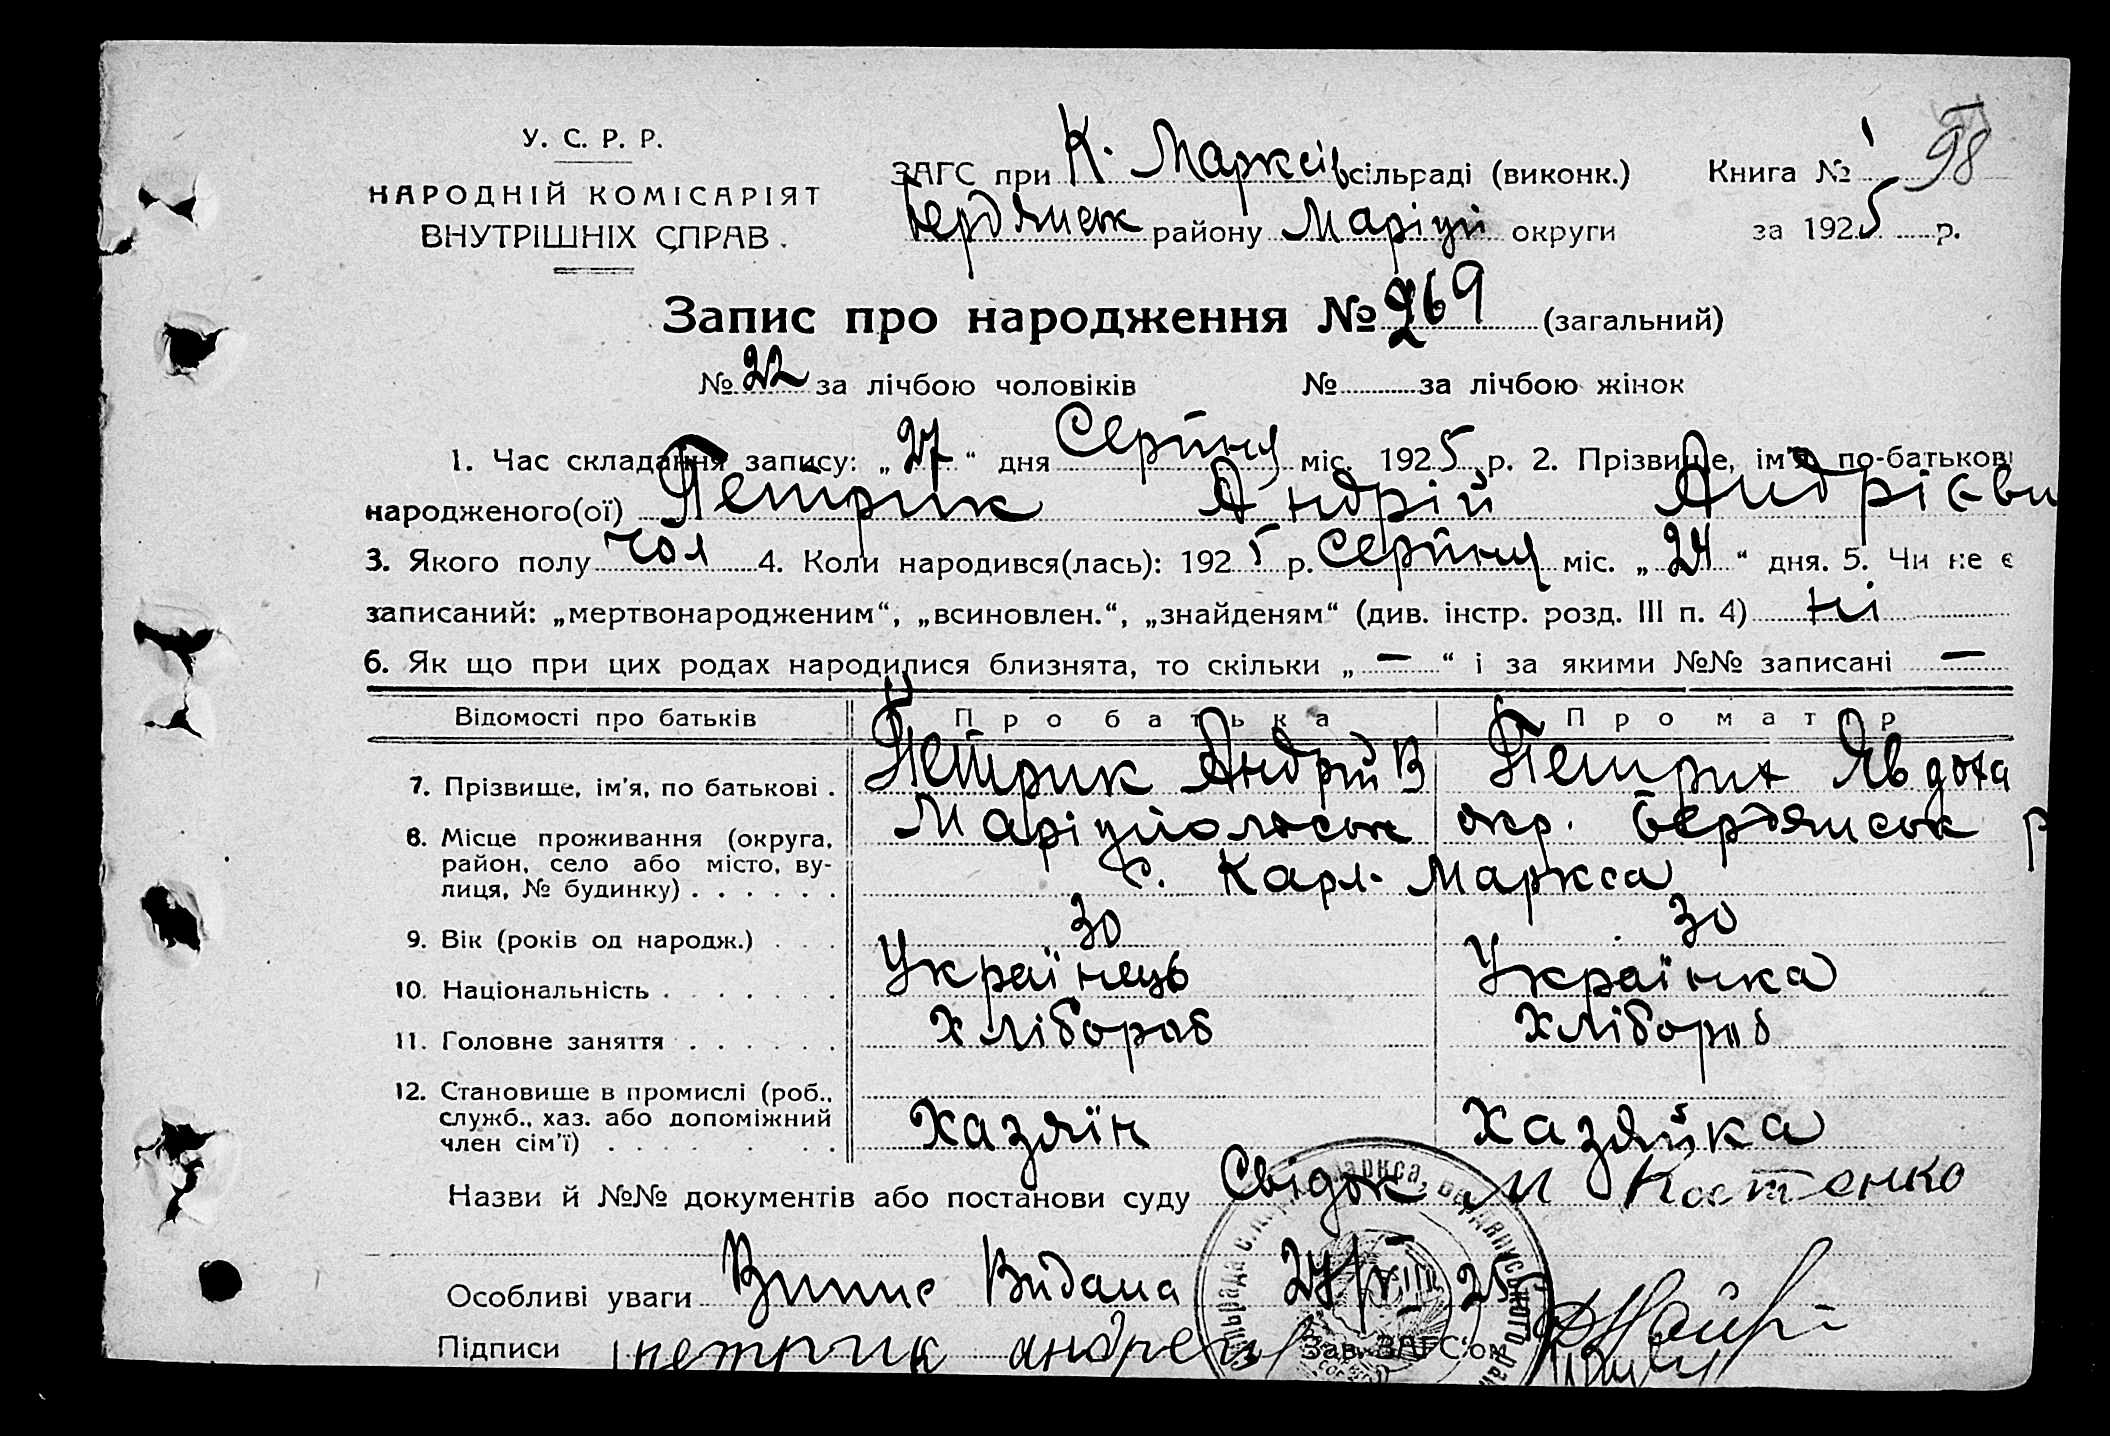 У. С. Р. Р.
НАРОДНІЙ КОМІСАРІЯТ
ВНУТРІШНІХ СПРАВ.
ЗАГС при К. Марксів сільраді (виконк.)
Бердянськ району Маріуп округи
Книга № 1 98
за 1925 р.
Запис про народження № 269 (загальний)
№ 22 за лічбою чоловіків № за лічбою жінок
1. Час складання запису: „27“ дня Серпня міс. 1925 р. 2. Прізвище, ім'я, по-батькові
народженого(ої) Петрик Андрій Андрієви
3. Якого полу чол 4. Коли народився(лась): 1925 р. Серпня міс. „24“ дня. 5. Чи не є
записаний: „мертвонародженим“, „всиновлен.“, „знайденям“ (див. інстр. розд. III п. 4) ні
6. Як що при цих родах народилися близнята, то скільки „—“ і за якими №№ записані —
Відомості про батьків Про батька Про матір
7. Прізвище, ім'я, по батькові . Петрик Андрій В Петрик Явдоха
8. Місце проживання (округа, Маріупольськ окр. Бердянськ р
район, село або місто, ву-
лиця, № будинку) . . . . . . с. Карл. Маркса
9. Вік (років од народж.) . . . 30 30
10. Національність . . . . . . . Українець Українка
11. Головне заняття . . . . . . Хлібороб Хлібороб
12. Становище в промислі (роб.,
служб., хаз. або допоміжний
член сім'ї) . . . . . . . Хазяїн Хазяйка
Назви й №№ документів або постанови суду Свідок М Костенко
Особливі уваги Випис Видана 27/VIII 25
Підписи петрик андрей Зав. ЗАГС'ом